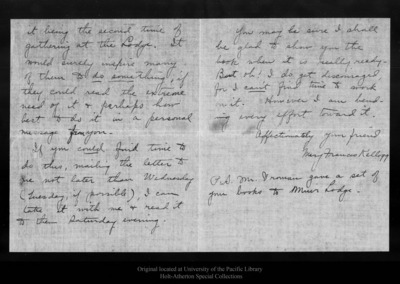 it being the second time of
gathering at the Lodge. It
would surely inspire many
of them to do something, if
they could read the extreme
need of it & perhaps how
best to do it in a personal
message from you.
If you could find time to
do this, mailing the letter to
me not later than Wednesday
(Tuesday, if possible), I can
take it with me & read it
to them Saturday evening.
You may be sure I shall
be glad to show you the
book when it is really ready.
But oh! I do get discouraged
for I can't find time to work
on it. However I am bend-
ing every effort toward it.
Affectionately your friend
Mary Frances Kellogg
P.S. Mr. Vroman gave a set of
your books to Muir Lodge.
Original located at University of the Pacific Library
Holt-Atherton Special Collections